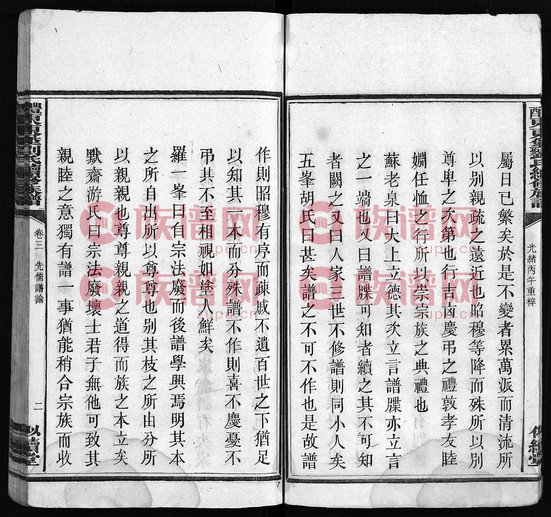 屬日已繁矣於是不變者累萬派而清流所
以別親疏之遠近也昭穆等降而殊所以別
尊卑之次第也行吉凶慶弔之禮敦孝友睦
婣任恤之行所以崇宗族之典禮也
蘇老泉曰大上立德其次立言譜牒亦立言
之一端也又曰譜牒可知者續之其不可知
者闕之又曰人家三世不修譜則同小人矣
五峯胡氏曰甚矣譜之不可不作也是故譜
光緒丙午重梓
作則昭穆有序而疎戚不遺百世之下猶足
以知其一本而分殊譜不作則喜不慶憂不
弔其不至相視如塗人鮮矣
羅一峯曰自宗法廢而後譜學興焉明其本
之所自出所以尊尊也别其枝之所由分所
以親親也尊尊親親之道得而族之本立矣
默齋游氏曰宗法廢壞士君子無他可致其
親睦之意獨有譜一事猶能稍合宗族而收
卷三
先儒譜論
二
族谱网